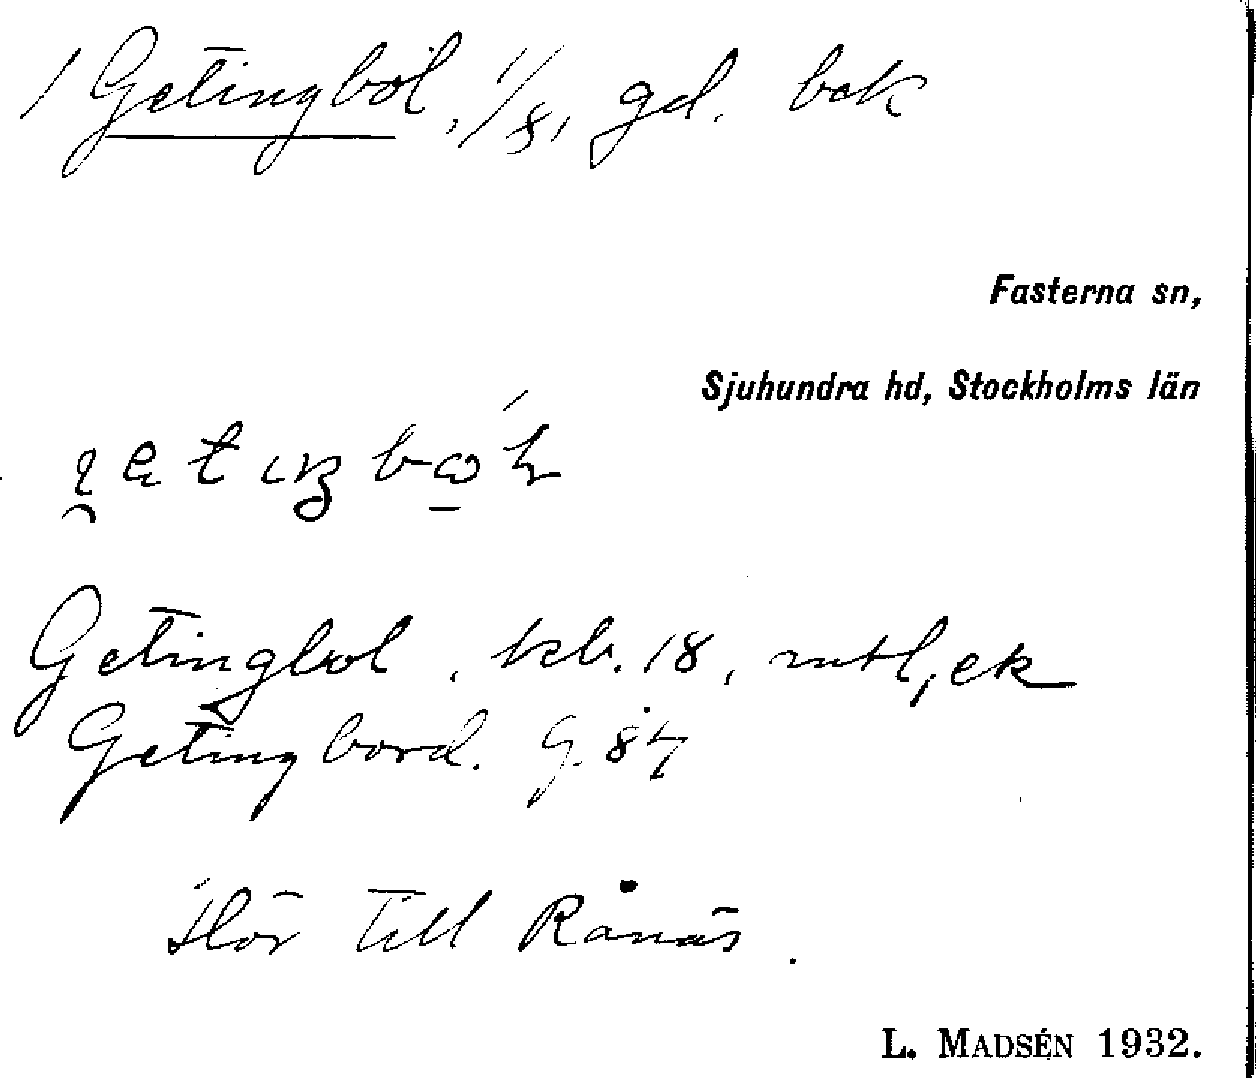 1 Getingböl, 1/8, gd. bek
Fasterna sn,
Sjuhundra hd, Stockholms län
Getingbol. kb. 18, mtl, ek
Getingbord. G. 87
Hör till Rånäs.
L. MADSÉN 1932.